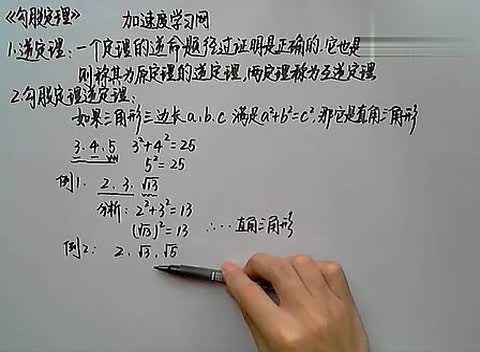 《勾股定理》 加速度学习网
1.逆定理：一个定理的逆命题经过证明是正确的.它也是
则称其为原定理的逆定理,两定理称为互逆定理
2.勾股定理逆定理：
如果三角形三边长a、b、c 满足a²+b²=c²,那它是直角三角形
3、4、5 3²+4²=25
5²=25
例1. 2、3、√13
分析：2²+3²=13
(√13)²=13 ∴…直角三角形
例2： 2、√3、√5